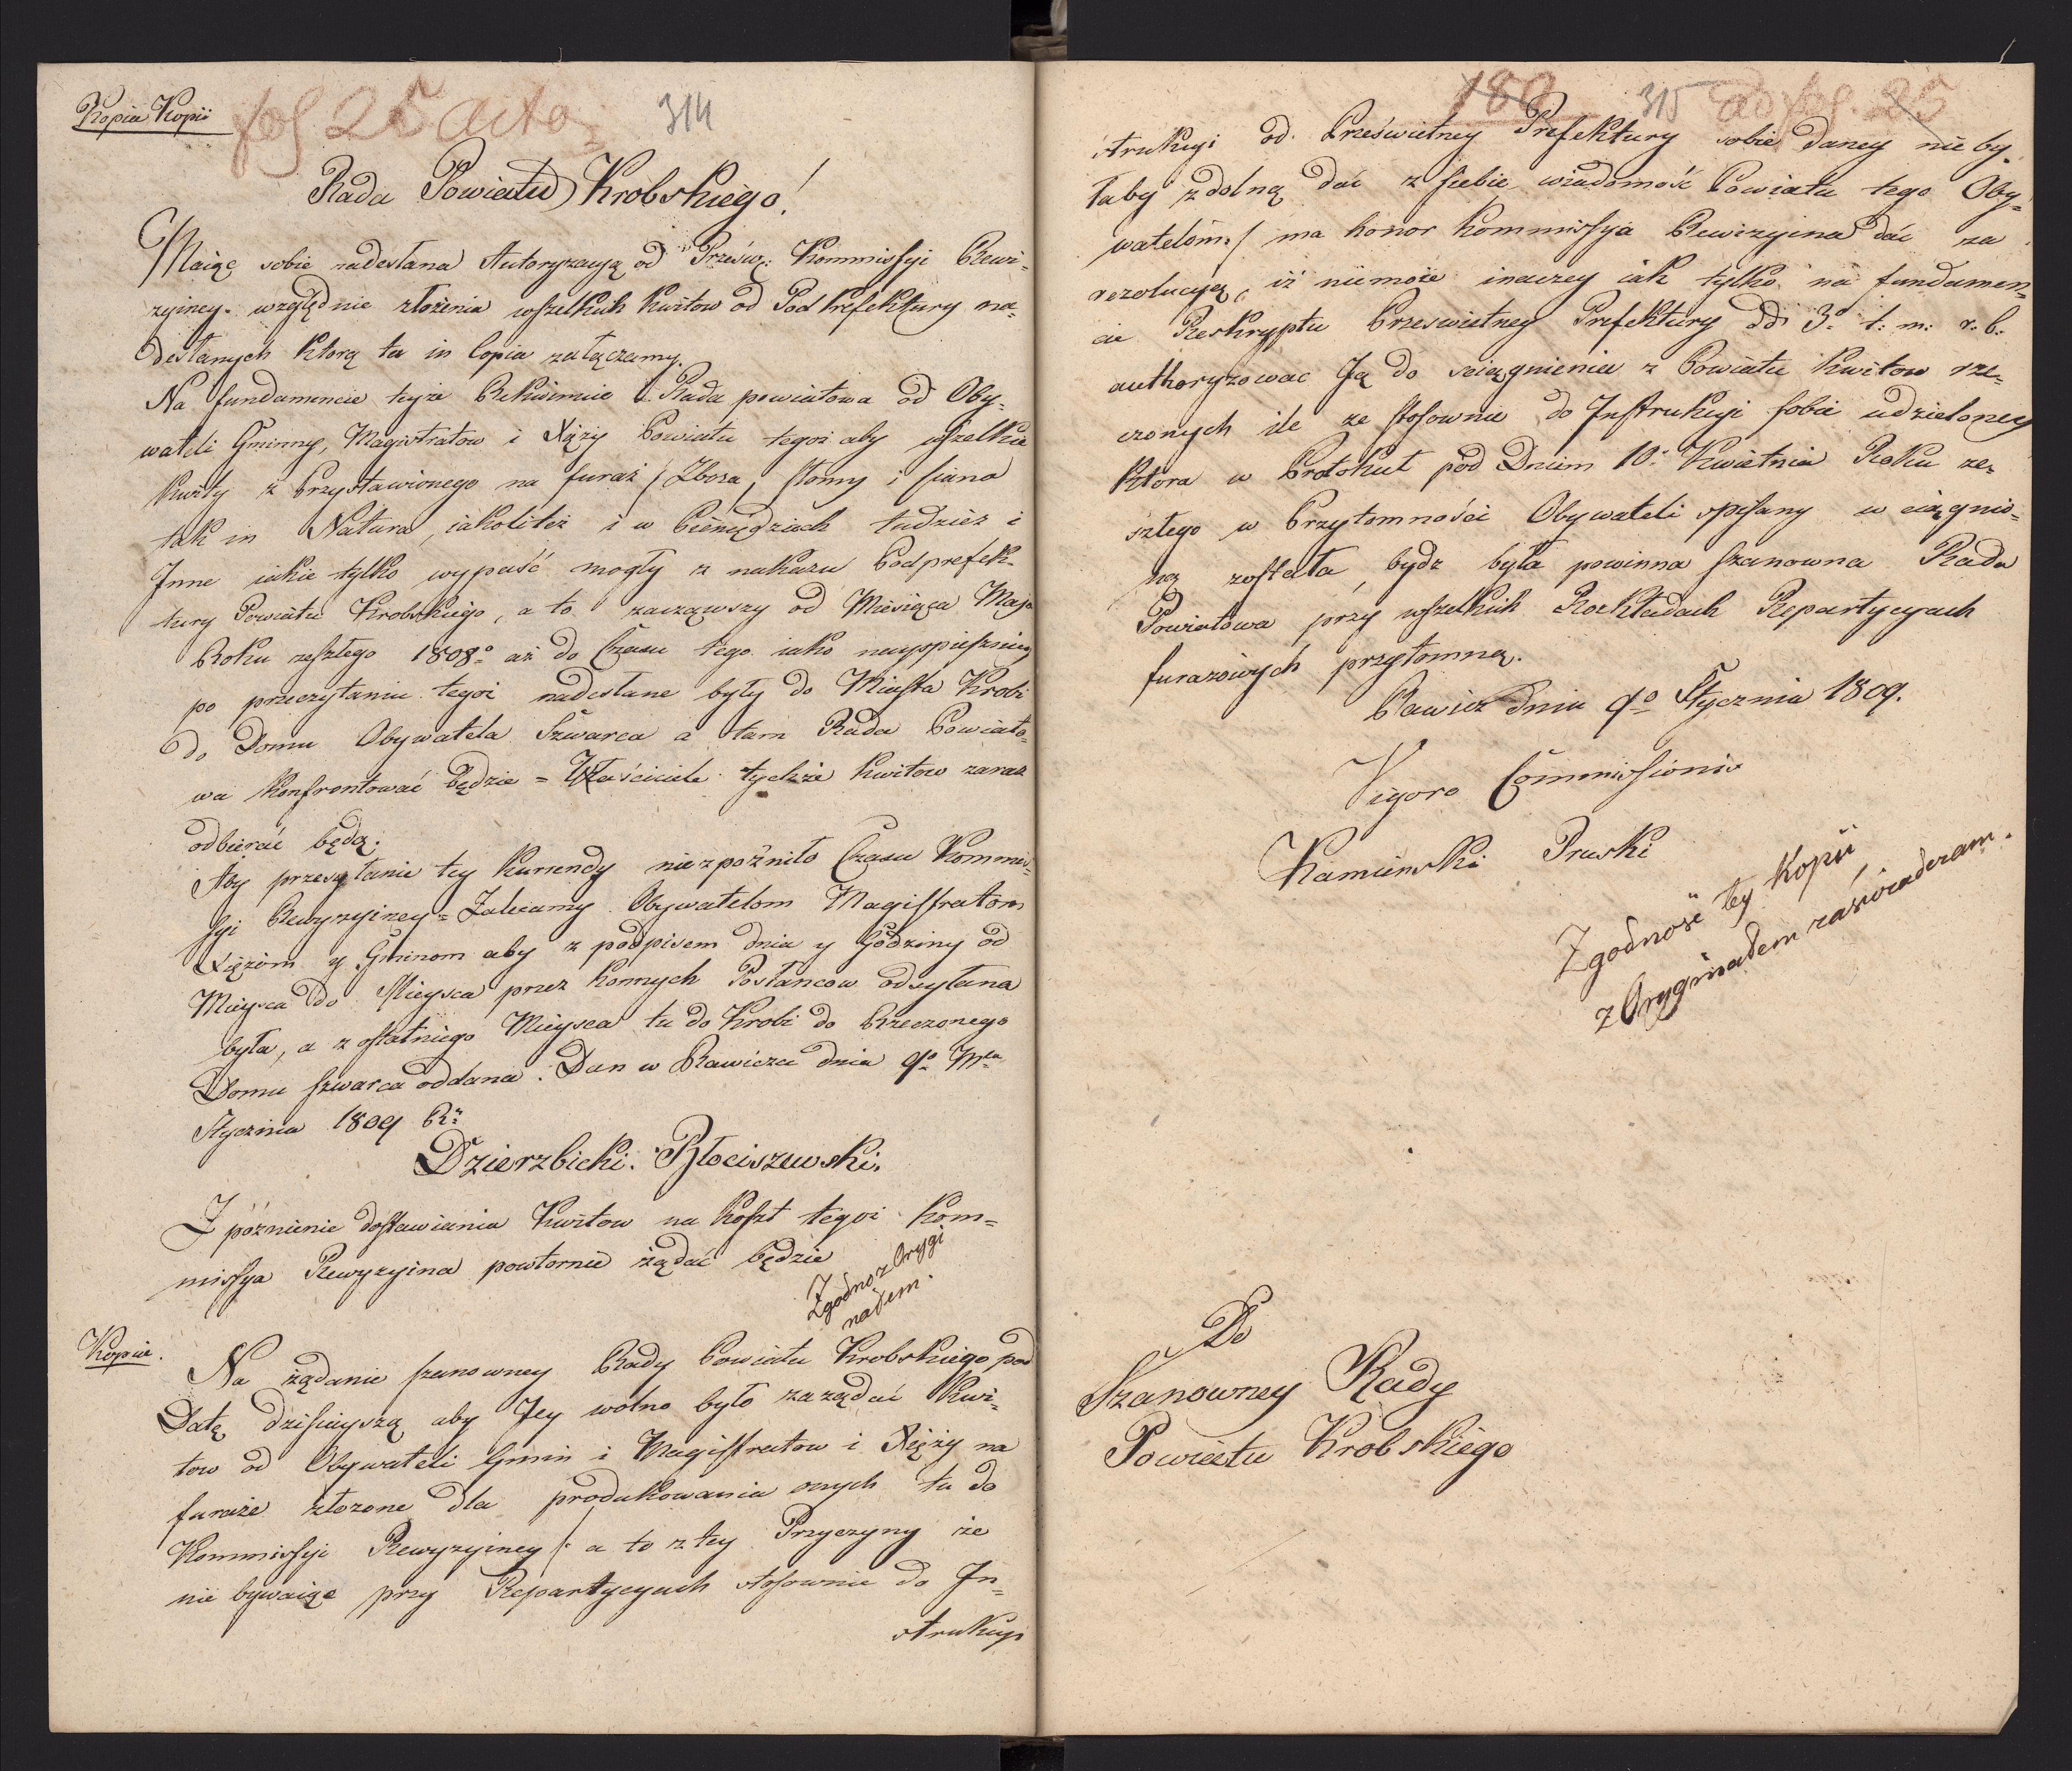 Kopia Kopii
fol 25 Acto
314
Rada Powiatu Krobskiego!
Maiąc sobie nadesłana Autoryzacyą od Prześw: Kommissyi Rewi-
zyiney względnie złożenia wszelkich kwitow od Pod Prefektury na-
desłanych ktorą tu in Copia załączamy.
Na fundamencie teyże Rekwiruie Rada powiatowa od Oby-
wateli Gminny, Magistratow i Xięży Powiatu tegoż aby wszelkie
kwity z Przystawionego na furaż / Zboża, słomy i siana
tak in Natura, iakoliteż i w Pieniądzach tudzież i
Inne iakie tylko wypaść mogły z nakazu Podprefek-
tury Powiatu Krobskiego, a to zacząwszy od Miesiąca Maja
Roku zeszłego 1808o aż do Czasu tego iako nayspieszniey
po przeczytaniu tegoż nadesłane były do Miasta Krobi
do Domu Obywatela Szwarca a tam Rada Powiato-
wa konfrontować będzie = Właściciele tychże kwitow zaraz
odbierać będą.
Aby przesyłanie tey kurrendy niezpoźniło Czasu Kommis-
syi Rewyzyiney = Zalecamy Obywatelom Magistratom
Xiężom y Gminom aby z podpisem dnia y Godziny od
Mieysca do Mieysca przez konnych Posłancow odsyłana
była, a z ostatniego Mieysca tu do Krobi do Rzeczonego
Domu szwarca oddana. Dan w Rawiczu dnia 9o Mca
Stycznia 1809 Ru
Dzierzbicki. Błociszewski.
Zpóznienie dostawiania Kwitow na koszt tegoż Kom-
missya Rewyzyina powtornie żądać będzie
Zgodno z Orygi
nałem.
Kopia.
Na żądanie szanowney Rady Powiatu Krobskiego pod
Datą dzisieyszą aby Jey wolno było zażądać Kwi-
tow od Obywateli Gmin i Magistratow i Xięży na
furaże złożone dla produkowania onych tu do
Kommissyi Rewyzyiney /: a to z tey Przyczyny że
nie bywaiąc przy Repartycyach stosownie do In-
strukcyi
180
315
ad fol. 25
strukcyi od Prześwietney Prefektury sobie daney nie by-
łaby zdolną dać z siebie wiadomość Powiatu tego Oby-
watelom:/ ma honor Kommissya Rewizyina dać za
rezolucyą, iż niemoże inaczey iak tylko na fundamen-
cie Reskryptu Prześwietney Prefektury ddo 3o t: m: r: b:
authoryzowac Ją do sciągnienia z Powiatu Kwitow rze-
czonych ile ze stosownie do Instrukcyi sobie udzieloney
ktora w Protokuł pod Dniem 10o Kwietnia Roku ze-
szłego w Przytomności Obywateli spisany w ciągnio-
ną została, bydz była powinna szanowna Rada
Powiatowa przy wszelkich Rozkładach Repartycyach
furazowych przytomną.
Rawicz dniu 9o Stycznia 1809.
Vigore Commissionis
Kamienski Pruski
Zgodność tey Kopii
z Oryginałem zaświadczam.
Do
Szanowney Rady
Powiatu Krobskiego